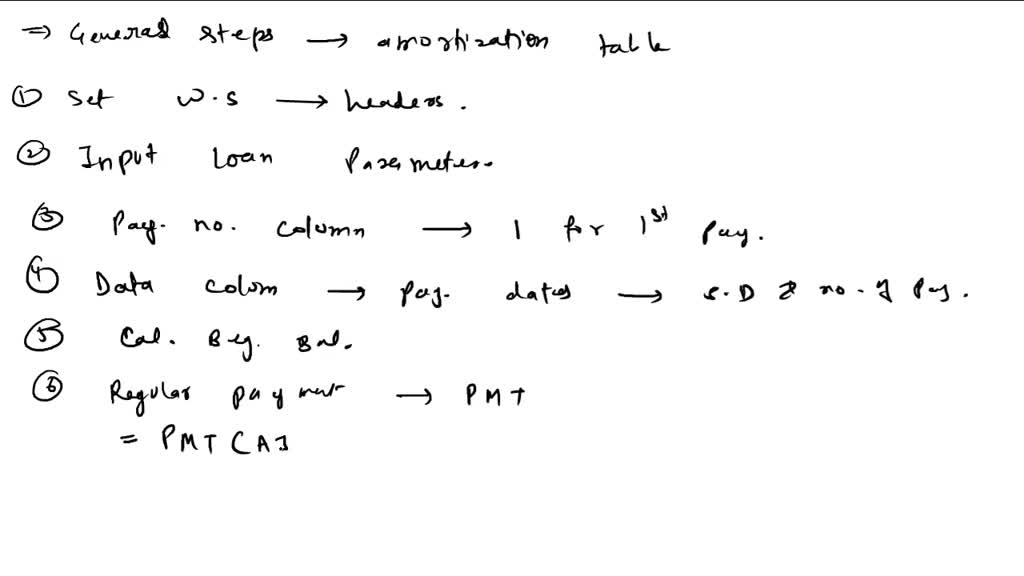 ⇒ General steps → amortization table
① Set W.S → headers.
② Input Loan Parameters.
③ Pay. no. column → 1 for 1st pay.
④ Data colum → pay. dates → S.D & no. of Pay.
⑤ Cal. Beg. Bal.
⑥ Regular payment → PMT
= PMT (A1